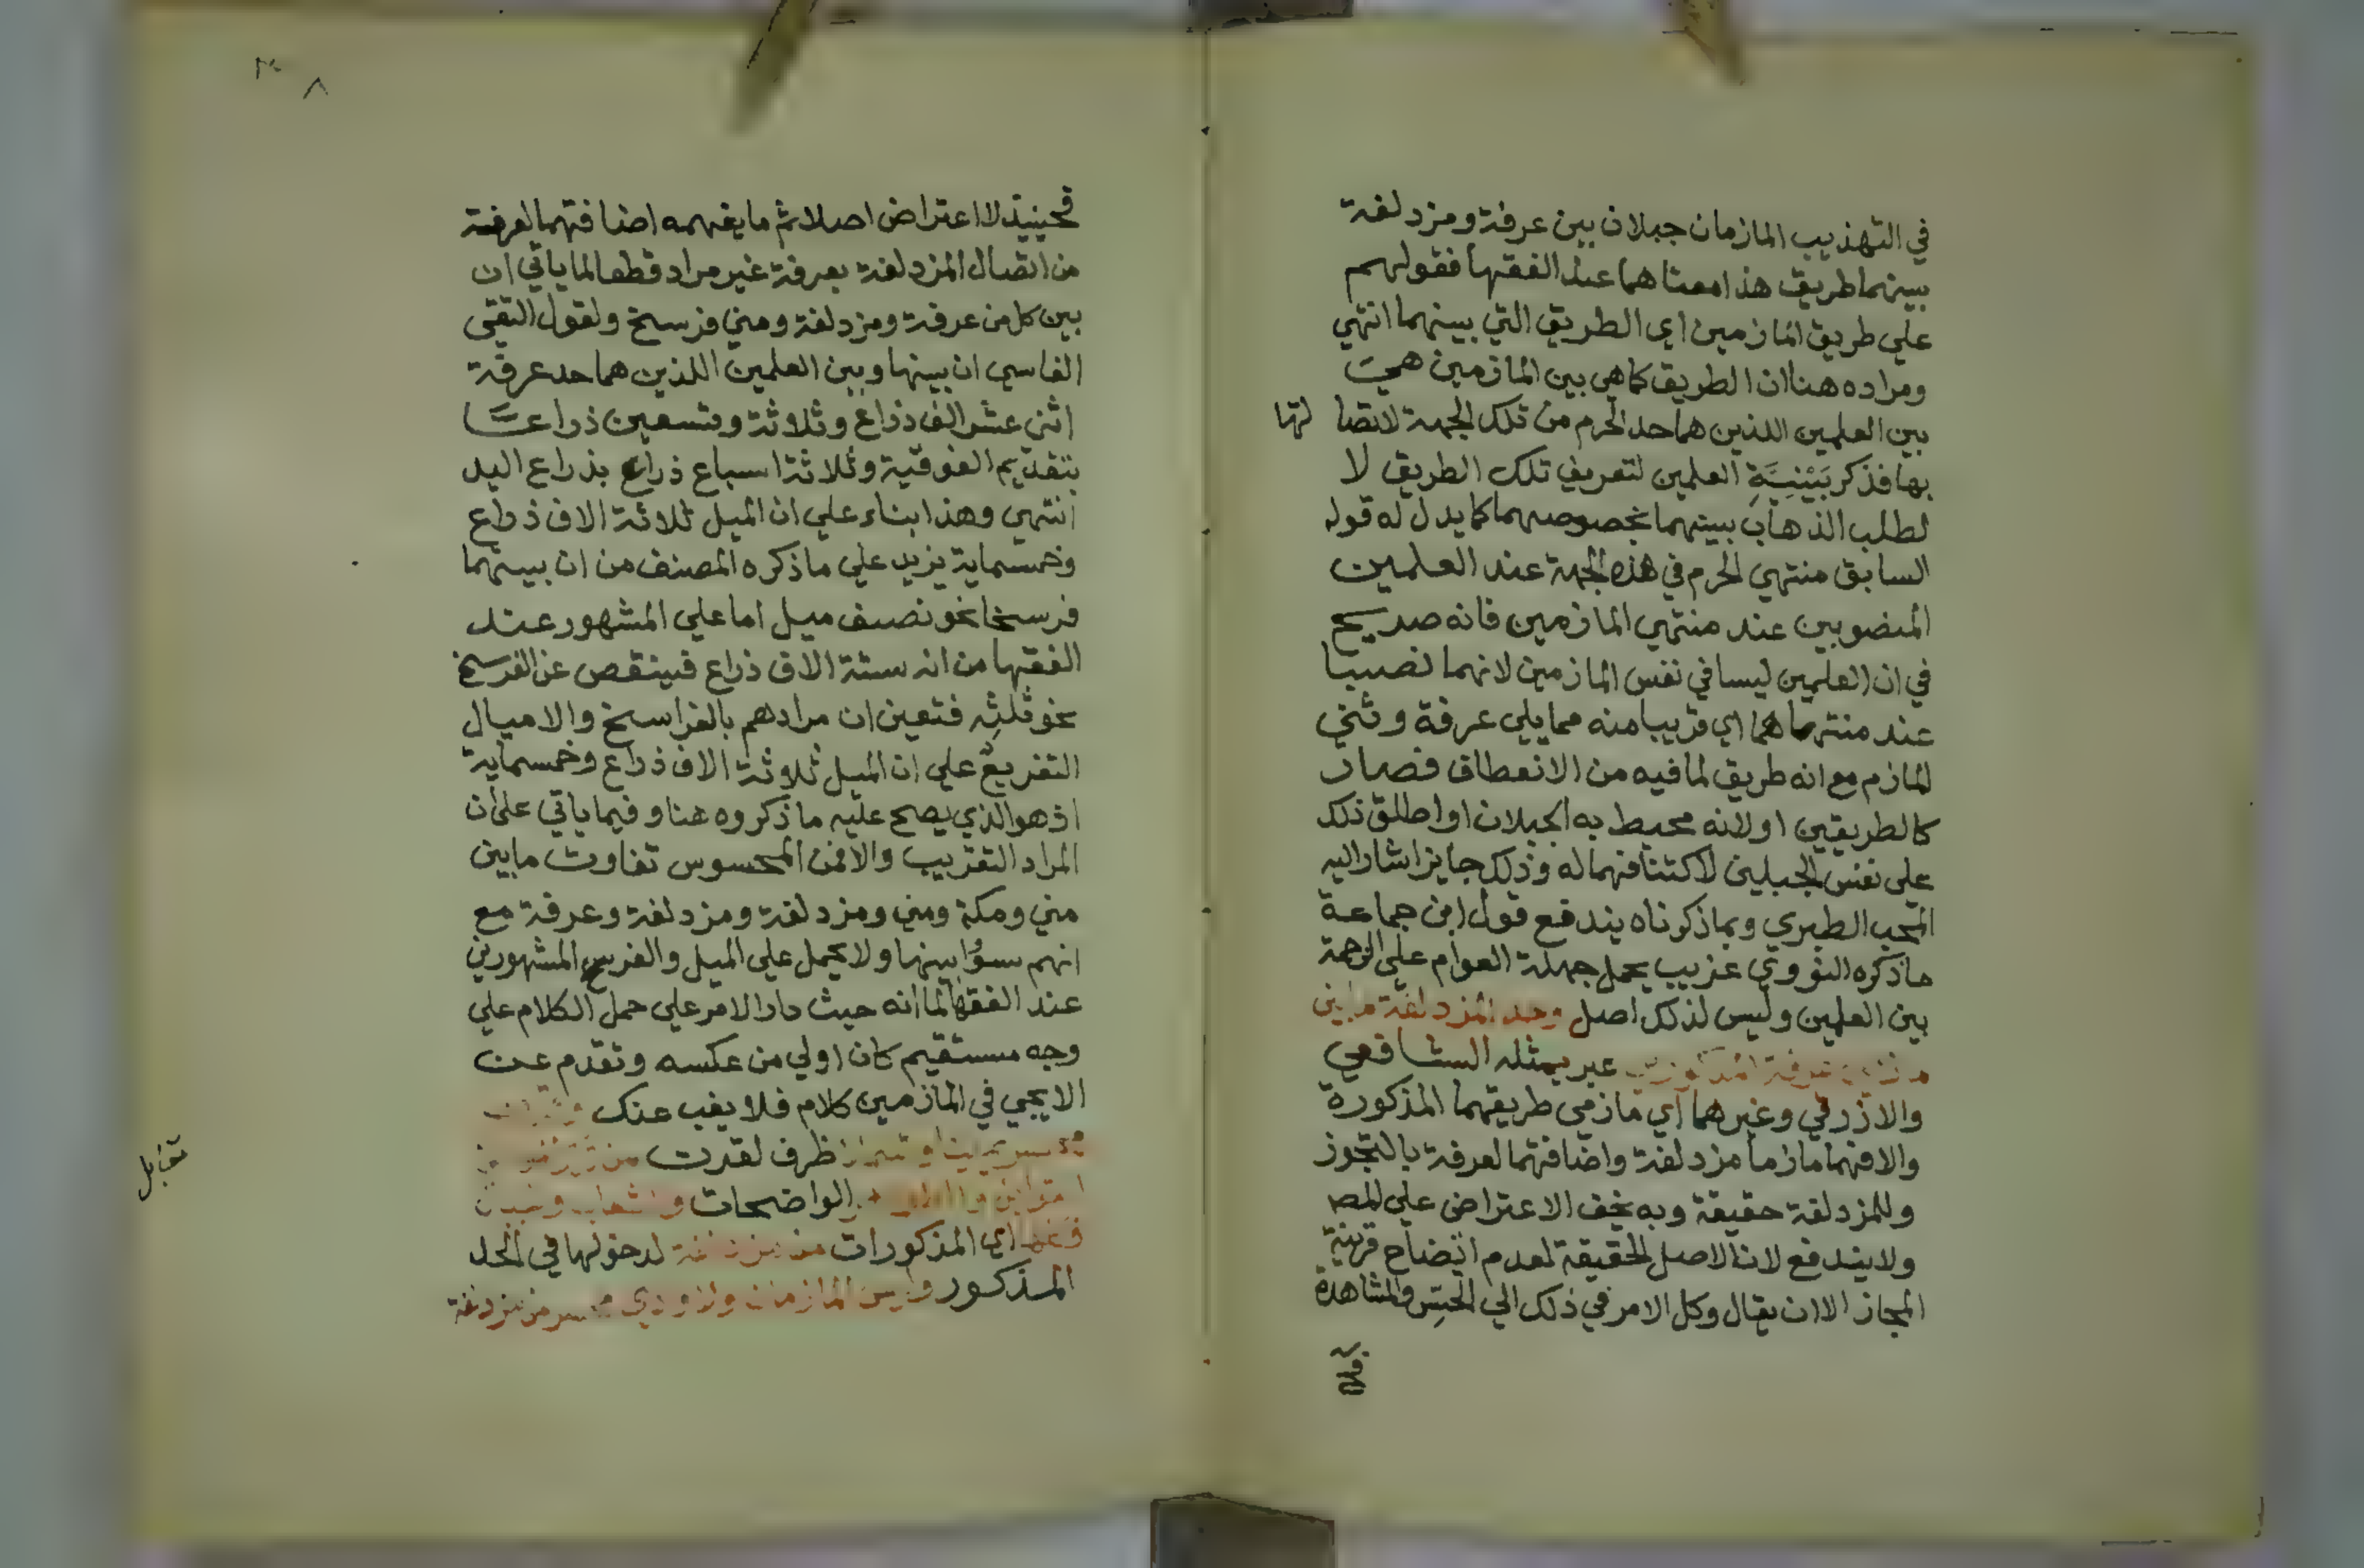 في التهذيب المازمان جبلان بين عرفة ومزدلفة
بينهما طريق هذا معناهما عند الفقها فقولهم
علي طريق المازمين اي الطريق التي بينهما انتهي
ومراده هنا ان الطريق كما هي بين المازمين هي
بين العلمين اللذين هما حد الحرم من تلك الجهة لاتصا لها
بها فذكر بَيْنِيَّةِ العلمين لتعريف تلك الطريق لا
لطلب الذهاب بينهما بخصوصهما كما يدل له قوله
السابق منتهي الحرم في هذه الجهة عند العلمين
المنصوبين عند منتهي المازمين فانه صريح
في ان العلمين ليسا في نفس المازمين لانهما نصبا
عند منتهاهما اي قريبا منه مما يلي عرفة وثني
المازم مع انه طريق لما فيه من الانعطاف فصار
كالطريقين او لانه محيط به الجبلان او اطلق ذلك
علي نفس الجبلين لاكتنافهما له وذلك جايز اشار اليه
المحب الطبري وبما ذكرناه يندفع قول ابن جماعة
ما ذكره النووي غريب يحمل جهلة العوام علي الزحمة
بين العلمين وليس لذلك اصل وحد المزدلفة ما بين
عرفة المذكورين عبر بمثله الشافعي
والازرقي وغيرهما اي مازمي طريقهما المذكورة
والا فهما مازما مزدلفة واضافتهما لعرفة بالتجوز
وللمزدلفة حقيقة وبه يخف الاعتراض علي المص
ولا يندفع لان الاصل الحقيقة لعدم اتضاح قرينة
المجاز الا ان يقال وكل الامر في ذلك الي الحِسّ والمشاهدة
٨
فحينيذ لا اعتراض اصلا ثم ما يفهمه اضافتهما لعرفة
من اتصال المزدلفة بعرفة غير مراد قطعا لما ياتي ان
بين كل من عرفة ومزدلفة ومني فرسخ ولقول التقي
الفاسي ان بينها وبين العلمين اللذين هما حد عرفة
اثني عشر الف ذراع وثلاثة وتسعين ذراعا
بتقديم الفوقية وثلاثة اسباع ذراع بذراع اليد
انتهي وهذا بناء علي ان الميل ثلاثة الاف ذراع
وخمسماية يزيد علي ما ذكره المصنف من ان بينهما
فرسخا نحو نصف ميل اما علي المشهور عند
الفقها من انه ستة الاف ذراع فينقص عن الفرسخ
نحو ثلثِه فتعين ان مرادهم بالفراسخ والاميال
التفريع علي ان الميل ثلاثة الاف ذراع وخمسماية
اذ هو الذي يصح عليه ما ذكروه هنا وفيما ياتي علي ان
المراد التقريب والا فمن المحسوس تفاوت ما بين
مني ومكة ومني ومزدلفة ومزدلفة وعرفة مع
انهم سوُّا بينها ولا يحمل علي الميل والفرسخ المشهورين
عند الفقها لما انه حيث دار الامر علي حمل الكلام علي
وجه مستقيم كان اولي من عكسه وتقدم عن
الايجي في المازمين كلام فلا يغب عنك
يمينا وشمالا ظرف لقدرت من
الواضحات والشعاب
اي المذكورات من مزدلفة لدخولها في الحد
المذكور وليس المازمان ولا وادي محسر من مزدلفة